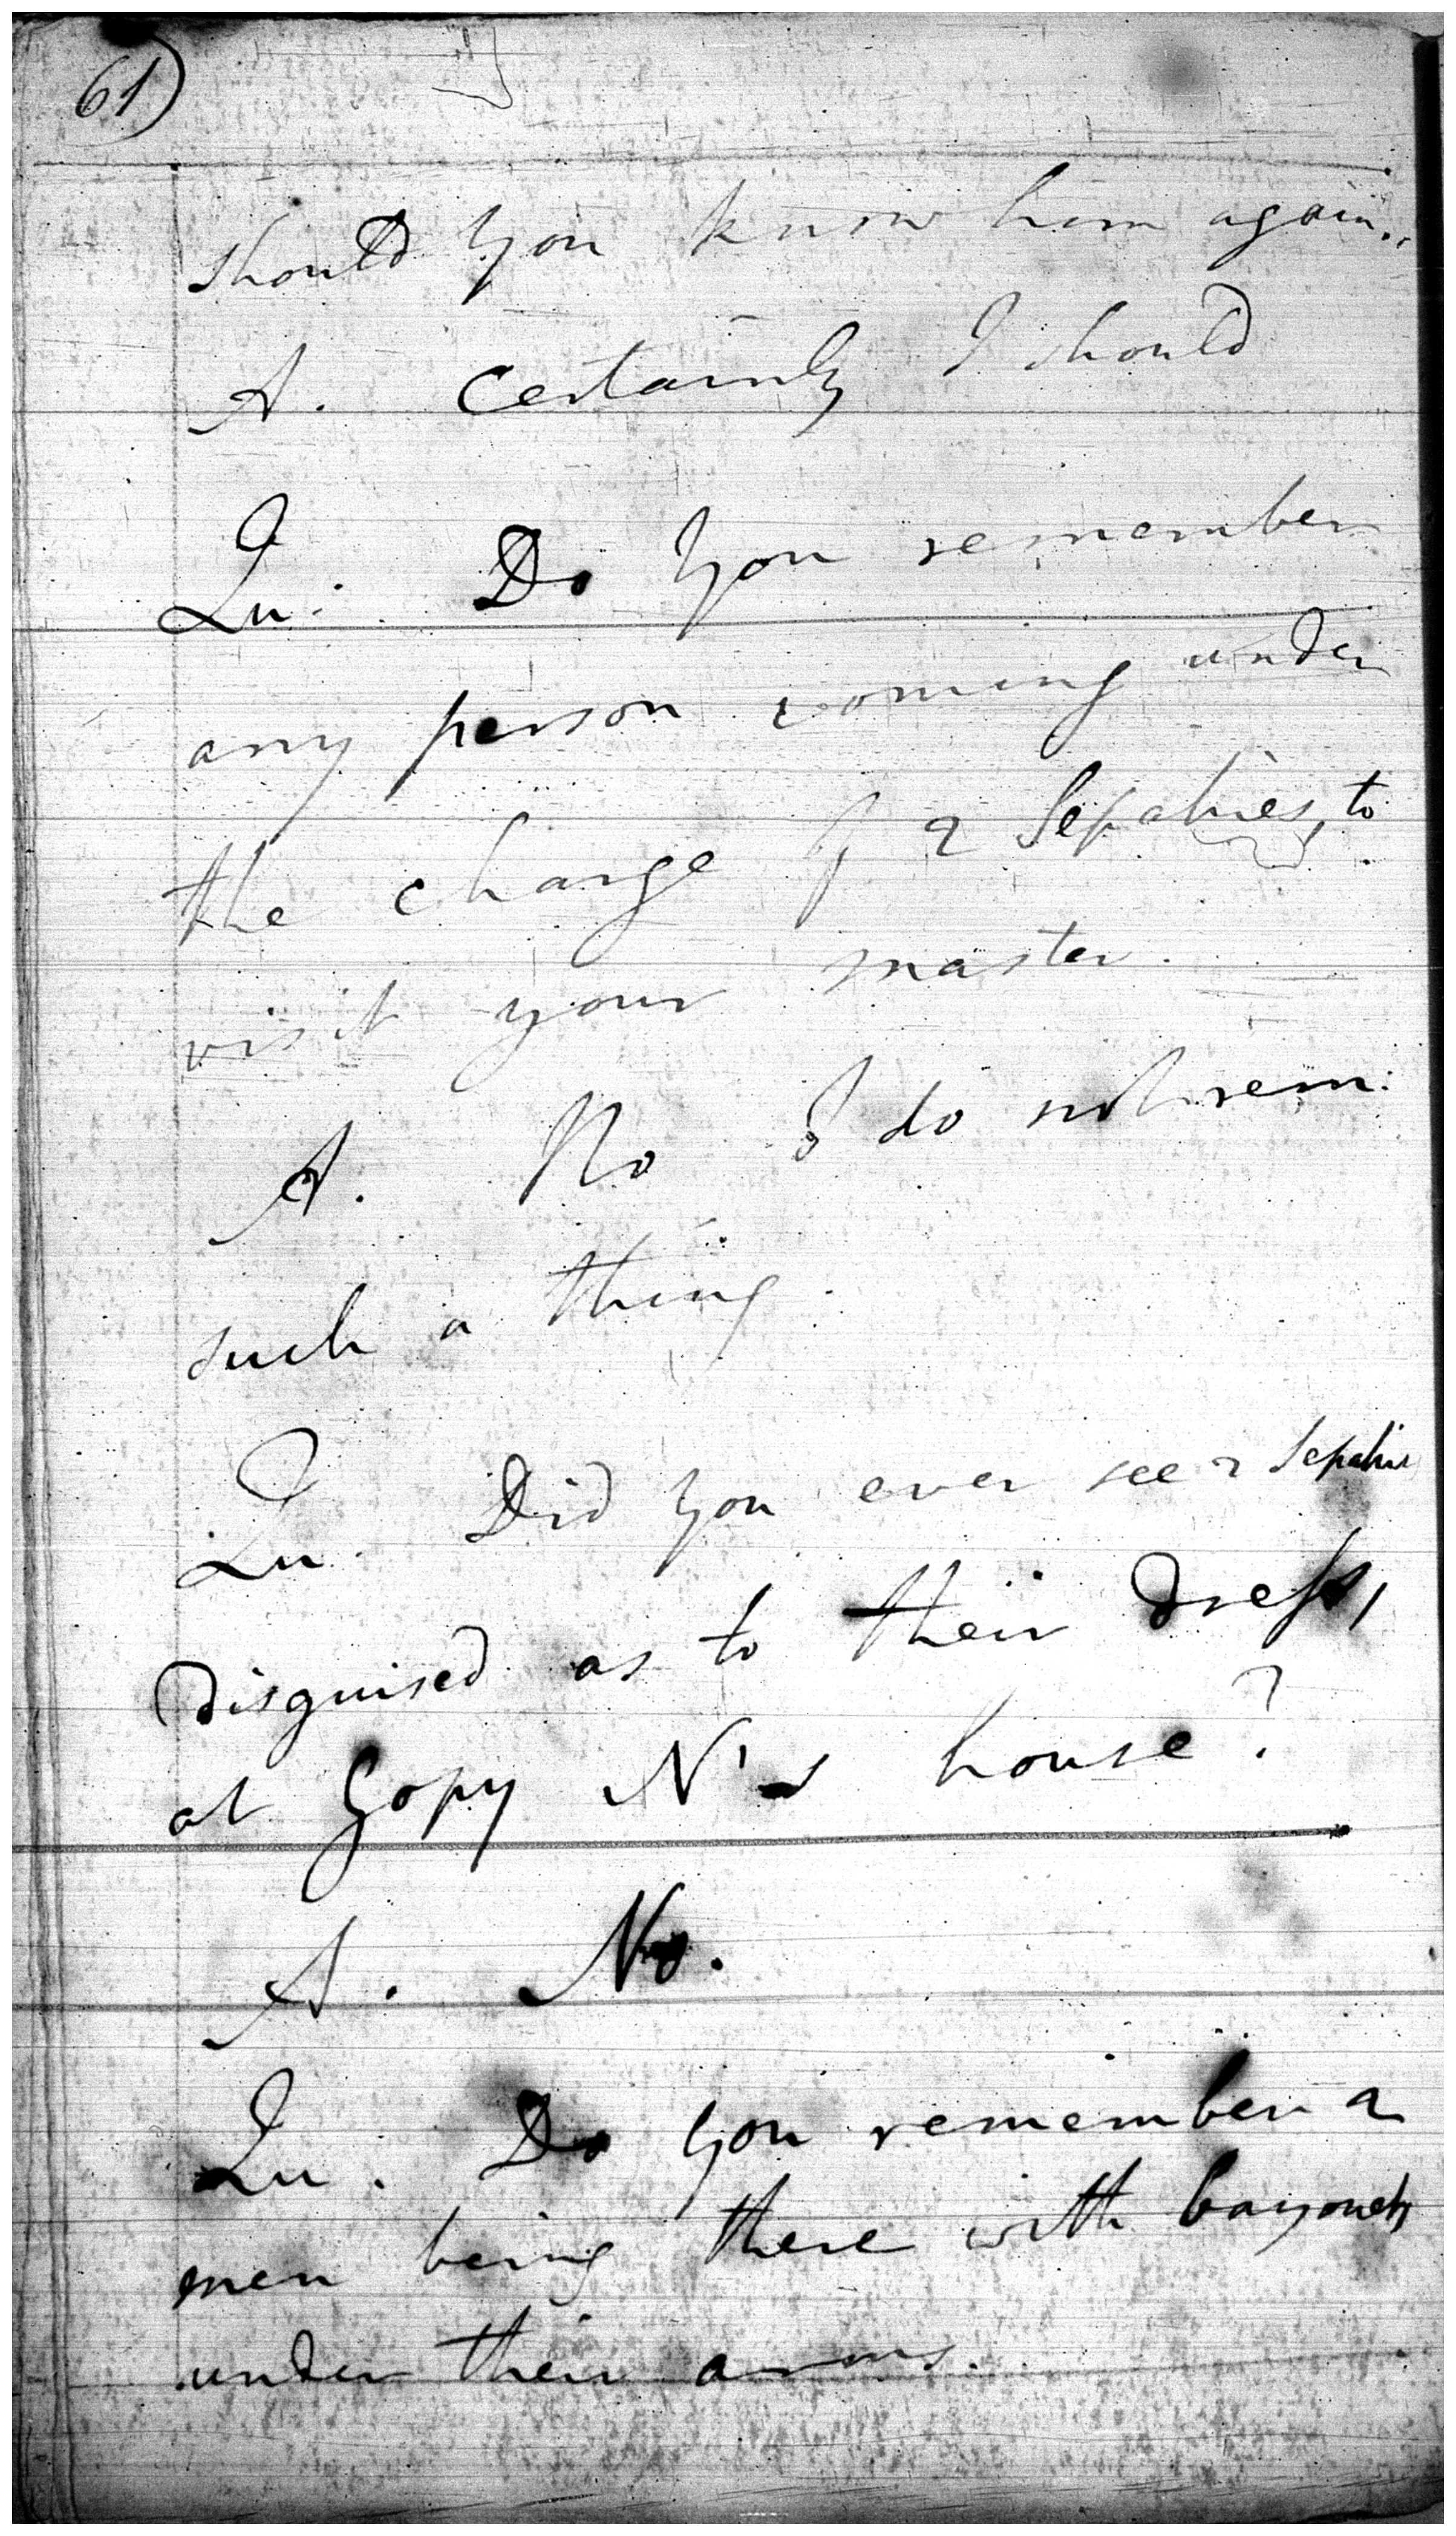 61)
should you know him again.
A. Certainly I should
Qu. Do you remember
any person coming under
the charge of 2 Sepahies, to
visit your master.
A. No I do not rem:
such a thing.
Qu. Did you ever see 2 Sepahies
disguised as to their dress,
at Gopy N's house?
A. No.
Qu. Do you remember 2
men being there with bayonets
under their arms.